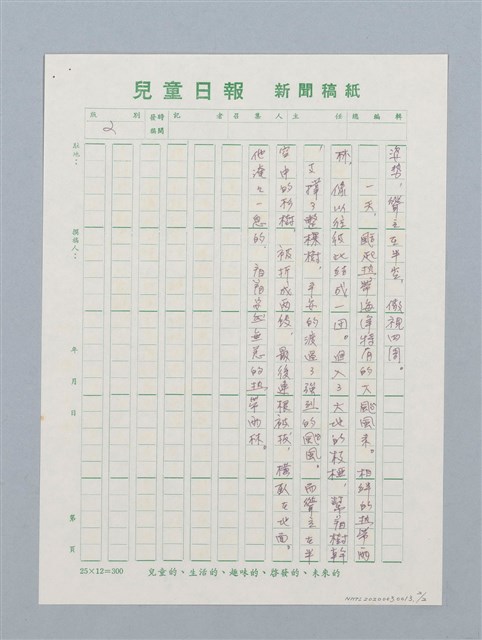 兒童日報 新聞稿紙
版 別 發稿時間 記 者 召 集 人 主 任 總 編 輯
2
姿勢,聳立在半空,傲視四周。
一天,颳起熱帶海洋特有的大颱風來。相絆的熱帶雨
林,像以往彼此結成一團。迴入了大地的枝極,緊箍樹幹
,支撐了整棵樹,平安的渡過了強烈的颱風。而聳立在半
空中的杉樹,被折成兩段,最後連根被拔,橫臥在地面。
他淹淹一息的,望著安然無恙的熱帶雨林。
駐地:
撰稿人:
年 月 日
第 頁
25×12=300 兒童的、生活的、趣味的、啓發的、未來的
2/2